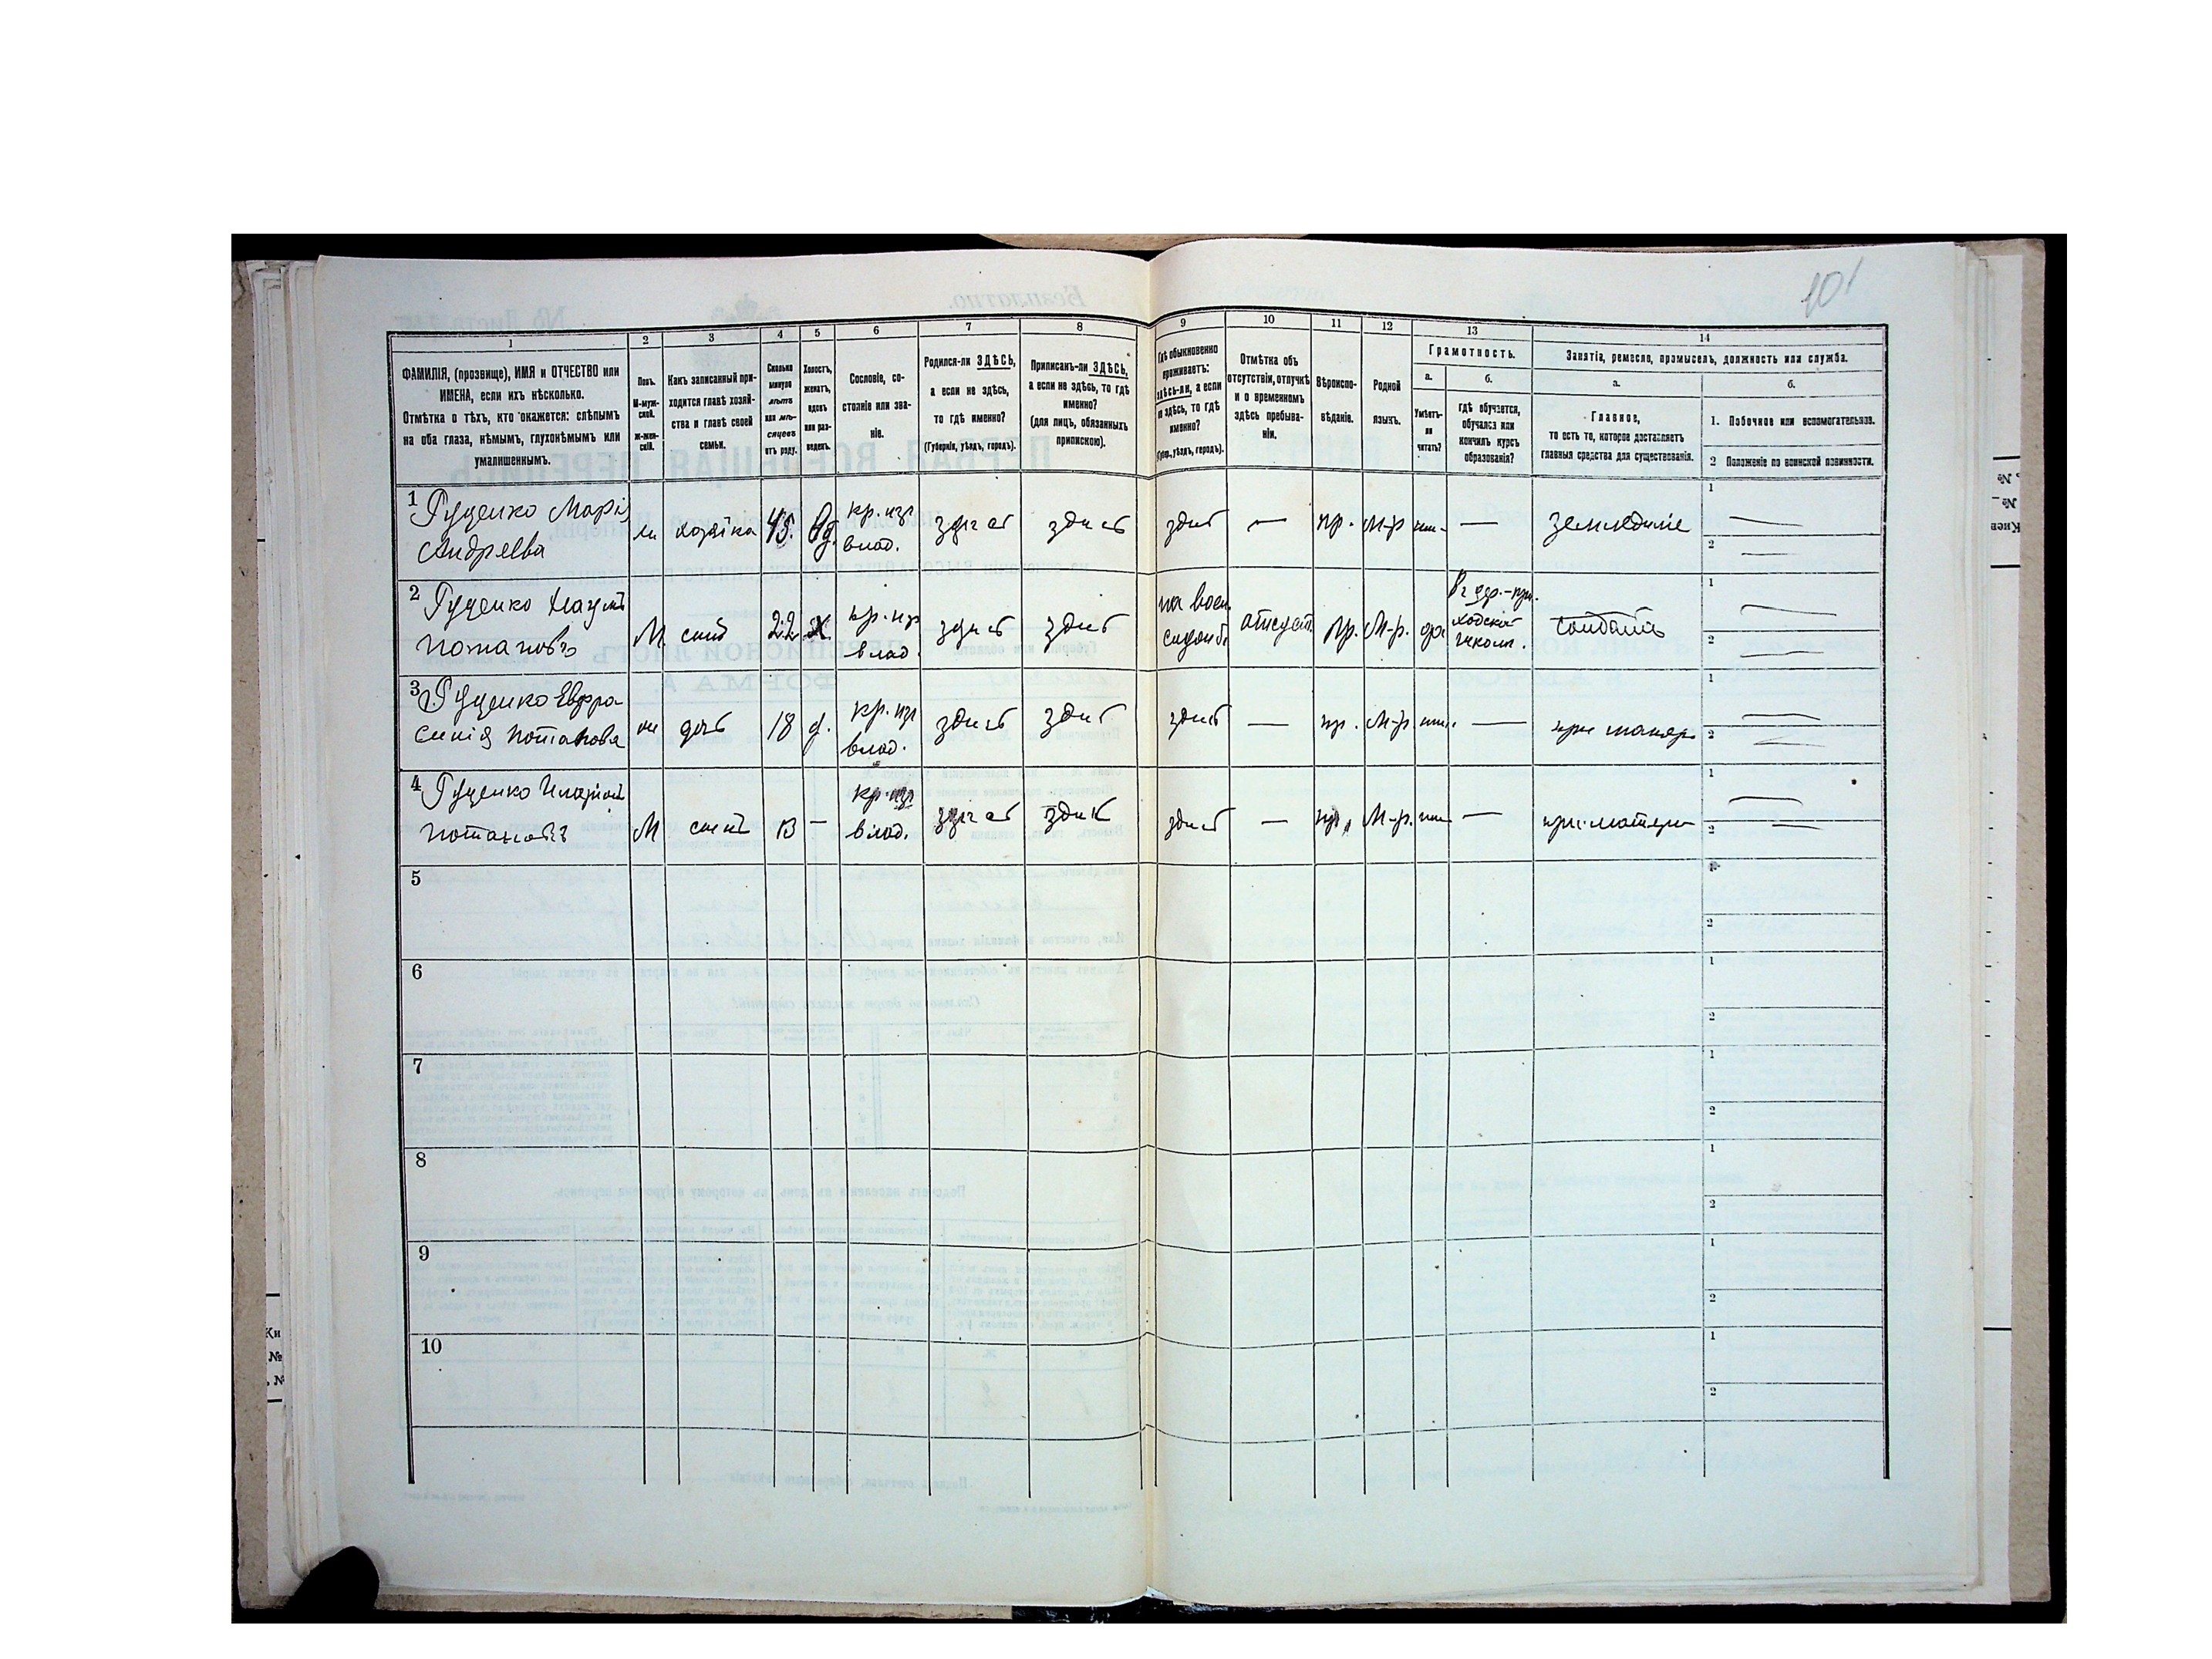 101
1 2 3 4 5 6 7 8 9 10 11 12 13 14
ФАМИЛІЯ, (прозвище), ИМЯ и ОТЧЕСТВО или
ИМЕНА, если ихъ нѣсколько.
Отмѣтка о тѣхъ, кто окажется: слѣпымъ
на оба глаза, нѣмымъ, глухонѣмымъ или
умалишеннымъ.
Полъ.
М-муж-
ской.
ж-жен-
скій.
Какъ записанный при-
ходится главѣ хозяй-
ства и главѣ своей
семьи.
Сколько
минуло
лѣтъ
или мѣ-
сяцевъ
отъ роду.
Холостъ,
женатъ,
вдовъ
или раз-
веденъ.
Сословіе, со-
стояніе или зва-
ніе.
Родился-ли ЗДѢСЬ,
а если не здѣсь,
то гдѣ именно?
(Губернія, уѣздъ, городъ).
Приписанъ-ли ЗДѢСЬ,
а если не здѣсь, то гдѣ
именно?
(для лицъ, обязанныхъ
припискою).
Гдѣ обыкновенно
проживаетъ:
здѣсь-ли, а если
не здѣсь, то гдѣ
именно?
(Губер., уѣздъ, городъ).
Отмѣтка объ
отсутствіи, отлучкѣ
и о временномъ
здѣсь пребыва-
ніи.
Вѣроиспо-
вѣданіе.
Родной
языкъ.
Грамотность.
а.
Умѣетъ-
ли
читать?
б.
гдѣ обучается,
обучался или
кончилъ курсъ
образованія?
Занятія, ремесло, промыселъ, должность или служба.
а.
Главное,
то есть то, которое доставляетъ
главныя средства для существованія.
б.
1. Побочное или вспомогательное.
2 Положеніе по воинской повинности.
1 Гуценко Марія
Андреева
хозяйка 45. Вд. кр. изъ
влад. здѣсь здѣсь здѣсь — пр. М-р — земледѣліе
2 Гуценко Наумъ
Потаповъ
М. сынъ 22 х. кр. из
влад. здѣсь здѣсь на воен.
службѣ отсутст. пр. М-р. да
ходской
школѣ. солдатъ
3 Гуценко Евфра
синія Потапова
дочь 18 д. кр. из
влад. здѣсь здѣсь здѣсь — пр. М-р — при матери
4 Гуценко
Потаповъ
М сынъ 13 — кр. из
влад. здѣсь здѣсь здѣсь — пр. М-р. — при матери
5
6
7
8
9
10